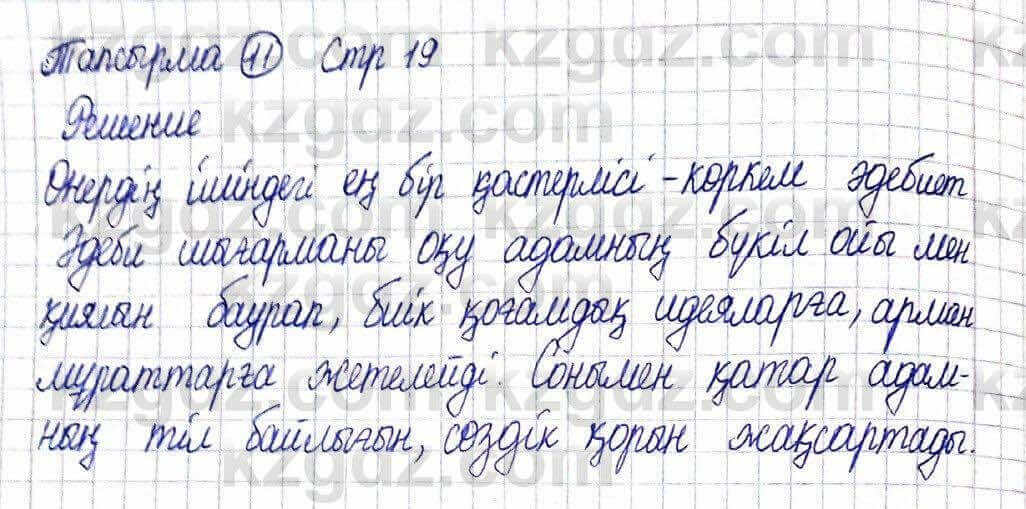 Тапсырма 11 Стр 19
Решение
Өнердің ішіндегі ең бір қастерлісі - көркем әдебиет
Әдеби шығарманы оқу адамның бүкіл ойы мен
қиялын баурап, биік қоғамдық идеяларға, арман
мұраттарға жетелейді. Сонымен қатар адам-
ның тіл байлығын, сөздік қорын жақсартады.
kzgdz.com